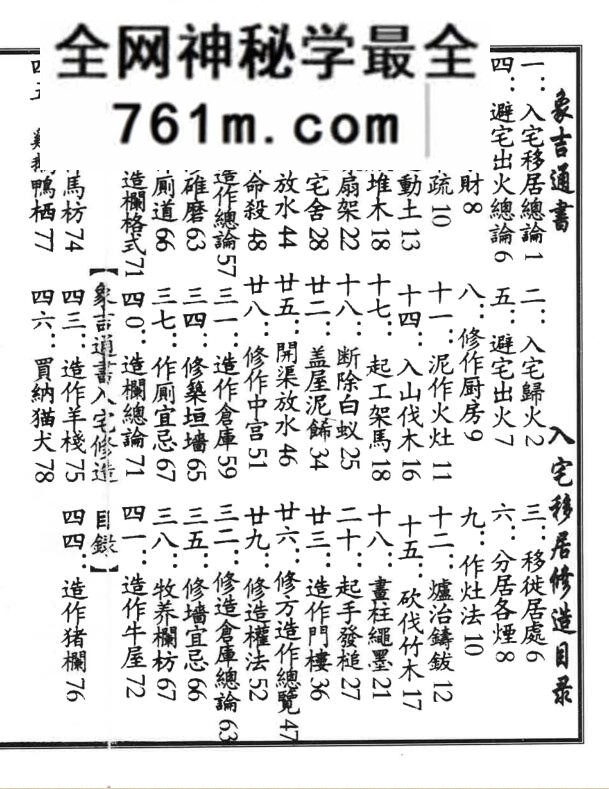 全网神秘学最全
761m.com
象吉通書 入宅移居修造目录
一：入宅移居總論1 二：入宅歸火2 三：移徙居處6
四：避宅出火總論6 五：避宅出火7 六：分居各煙8
財8 八：修作厨房9 九：作灶法10
疏10 十一：泥作火灶11 十二：爐冶鑄鈸12
動土13 十四：入山伐木16 十五：砍伐竹木17
堆木18 十七：起工架馬18 十八：畫柱繩墨21
扇架22 十八：断除白蚁25 二十：起手發槌27
宅舍28 廿二：盖屋泥餙34 廿三：造作門樓36
放水44 廿五：開渠放水46 廿六：修方造作總覽47
命殺48 廿八：修作中宫51 廿九：修造權法52
造作總論57 三一：造作倉庫59 三二：修造倉庫總論63
碓磨63 三四：修築垣墻65 三五：修墻宜忌66
厠道66 三七：作厠宜忌67 三八：牧养欄枋67
造欄格式71 四0：造欄總論71 四一：造作牛屋72
【象吉通書入宅修造 目錄】
馬枋74 四三：造作羊棧75 四四：造作猪欄76
四五 鴨栖77 四六：買納猫犬78